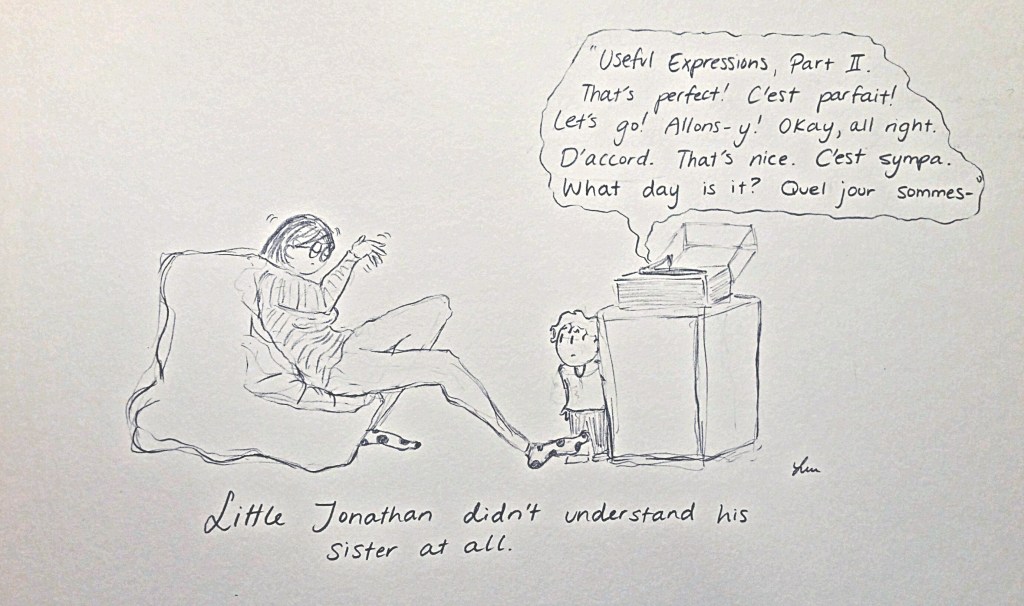 "Useful Expressions, Part II.
That's perfect! C'est parfait!
Let's go! Allons-y! Okay, all right.
D'accord. That's nice. C'est sympa.
What day is it? Quel jour sommes-"
Little Jonathan didn't understand his
sister at all.